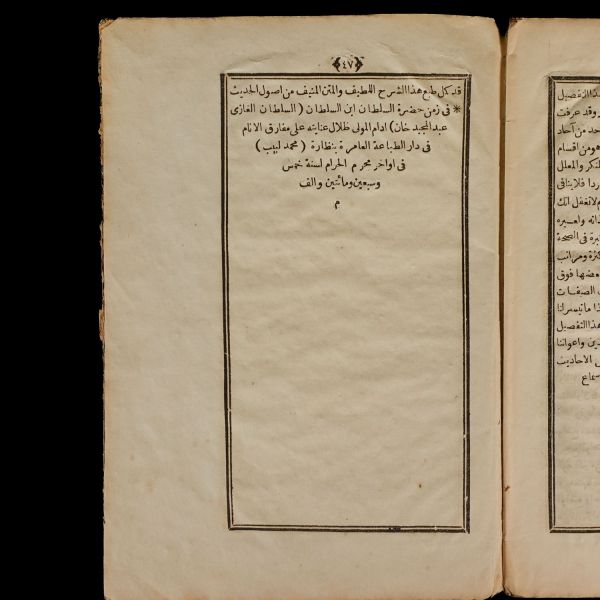 ﴿٤٧﴾
قد كمل طبع هذا الشرح اللطيف والمتن المنيف من اصول الحديث
* فى زمن حضرة السلطان ابن السلطان ( السلطان الغازى
عبد المجيد خان) ادام المولى ظلال عنايته على مفارق الانام
فى دار الطباعة العامرة بنظارة ( محمد لبيب )
فى اواخر محرم الحرام لسنة خمس
وسبعين ومائتين والف
م
هذا التفصيل
وقد عرفت
احد من آحاد
هو من اقسام
المنكر والمعلل
ردا فلا ينافى
م لا تغفل انك
ذاته ولغيره
يرة فى الصحة
كثرة ومراتب
بعضها فوق
الصفات
ذا ما تيسر لنا
هذا التفصيل
ين واعواننا
الاحاديث
سماع